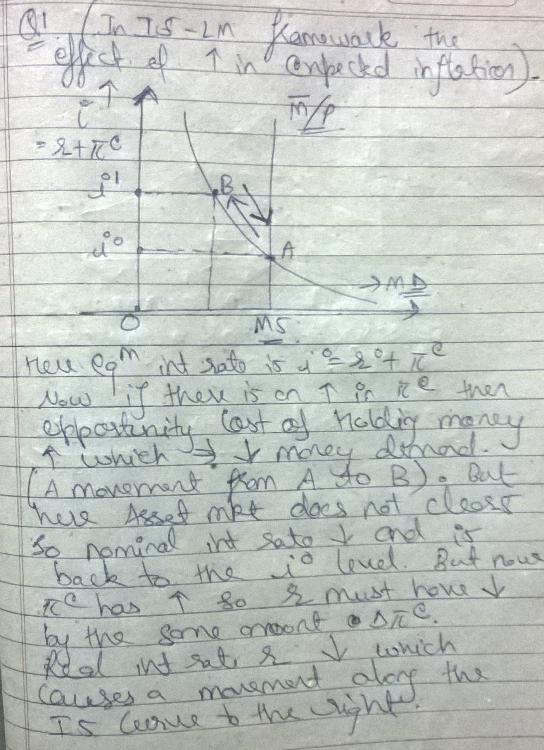 Q1 (In IS-LM framework the
effect of ↑ in expected inflation).
i
= r + π^e
M̄/P
i¹
B
i⁰
A
→ MD
O
MS
Here eq^m int rate is i⁰ = r⁰ + π^e
Now if there is an ↑ in π^e then
opportunity cost of holdig money
↑ which ⇒ ↓ money demand.
(A movement from A to B). But
here Asset mkt does not clear
so nominal int rate ↓ and is
back to the i⁰ level. But now
π^e has ↑ so r must have ↓
by the same amount Δπ^e.
Real int rate r ↓ which
causes a movement along the
IS curve to the right.